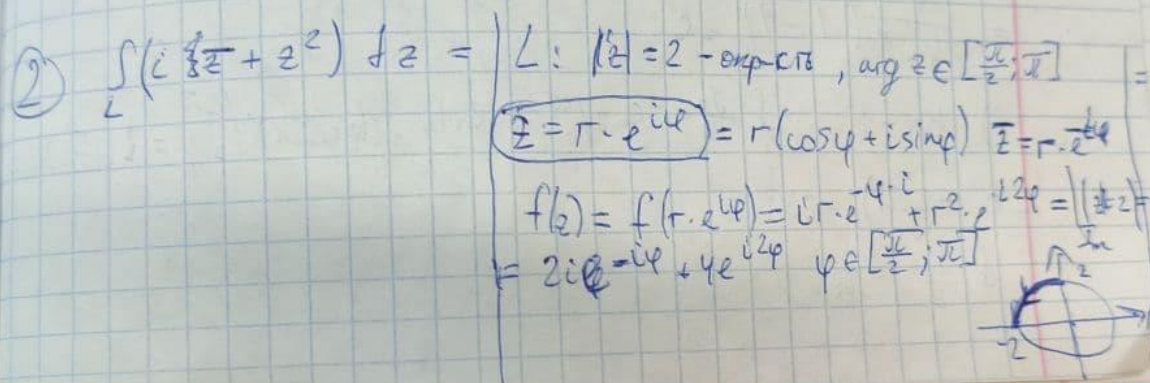 2) ∫_L (i z̄ + z²) dz = | L: |z| = 2 - окр-сть, arg z ∈ [π/2; π] =
z = r · e^{iφ} = r(cosφ + i sinφ) z̄ = r · e^{-iφ}
f(z) = f(r · e^{iφ}) = i r · e^{-φ·i} + r² · e^{i2φ} = | |z| = 2 | =
= 2i e^{-iφ} + 4e^{i2φ} φ ∈ [π/2; π]
2
-2